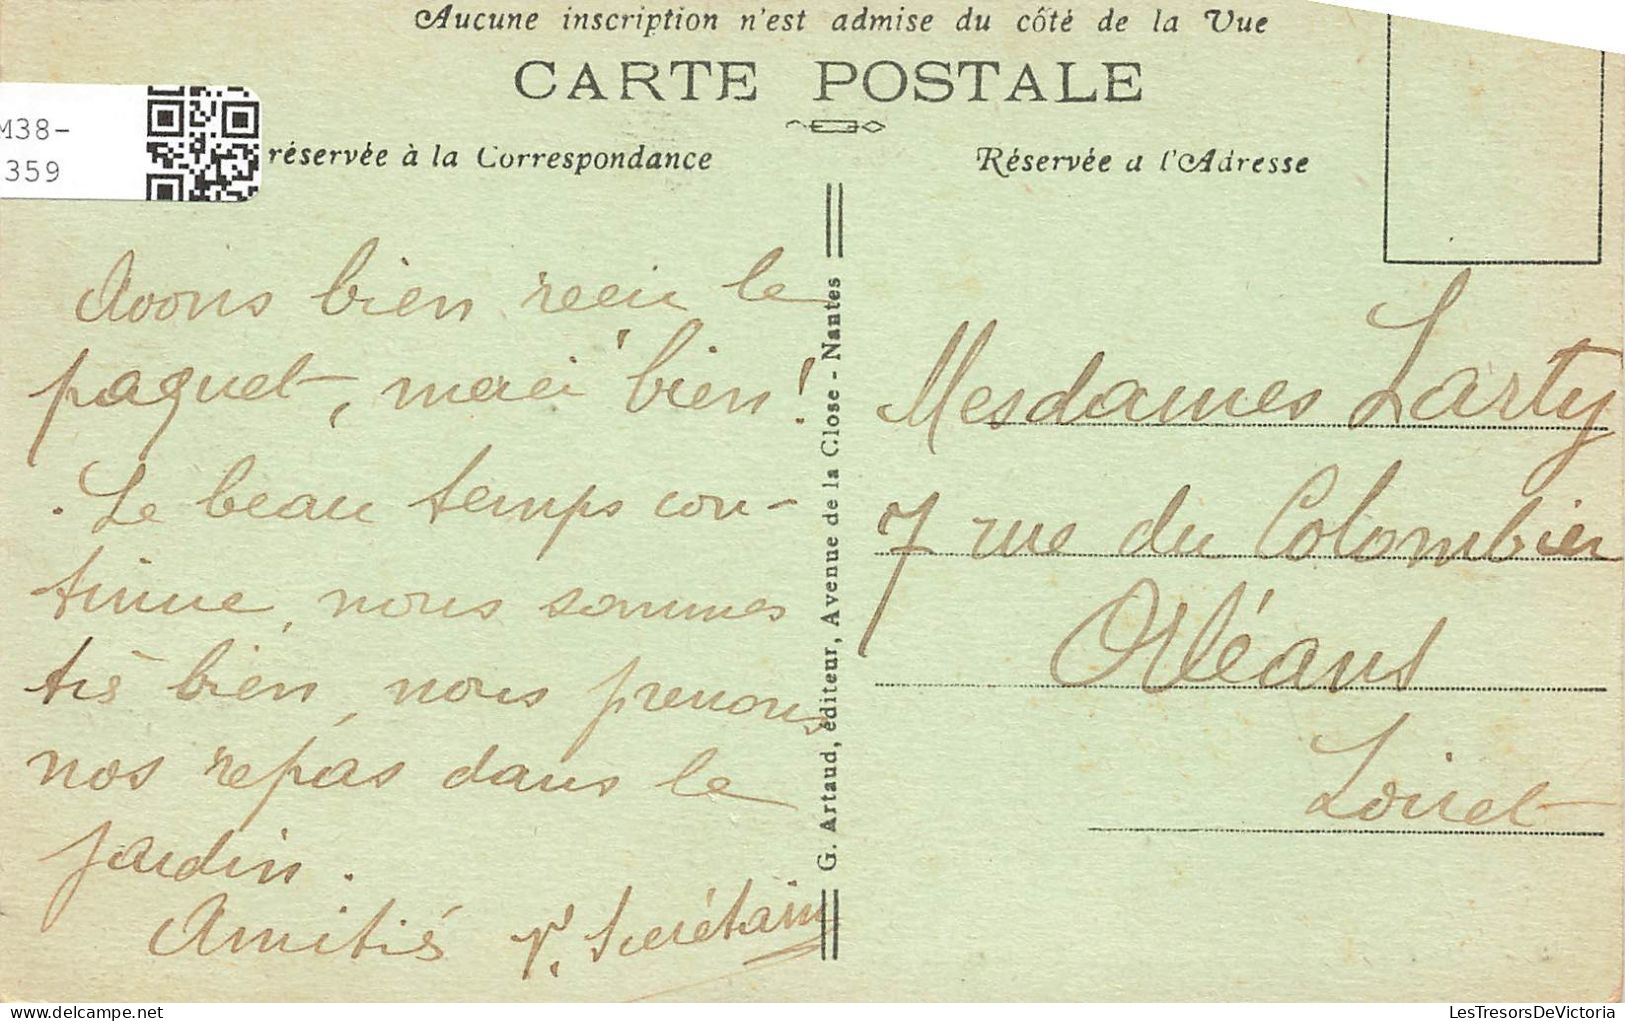 Aucune inscription n'est admise du côté de la Vue
CARTE POSTALE
M38-
359
réservée à la Correspondance
Réservée a l'Adresse
Avons bien reçu le
paquet, merci bien !
. Le beau temps con-
tinue, nous sommes
très bien, nous prenons
nos repas dans le
jardin.
Amitiés
G. Artaud, éditeur, Avenue de la Close - Nantes
Mesdames Larty
7 rue du Colombier
Orléans
Loiret
delcampe.net
LesTresorsDeVictoria